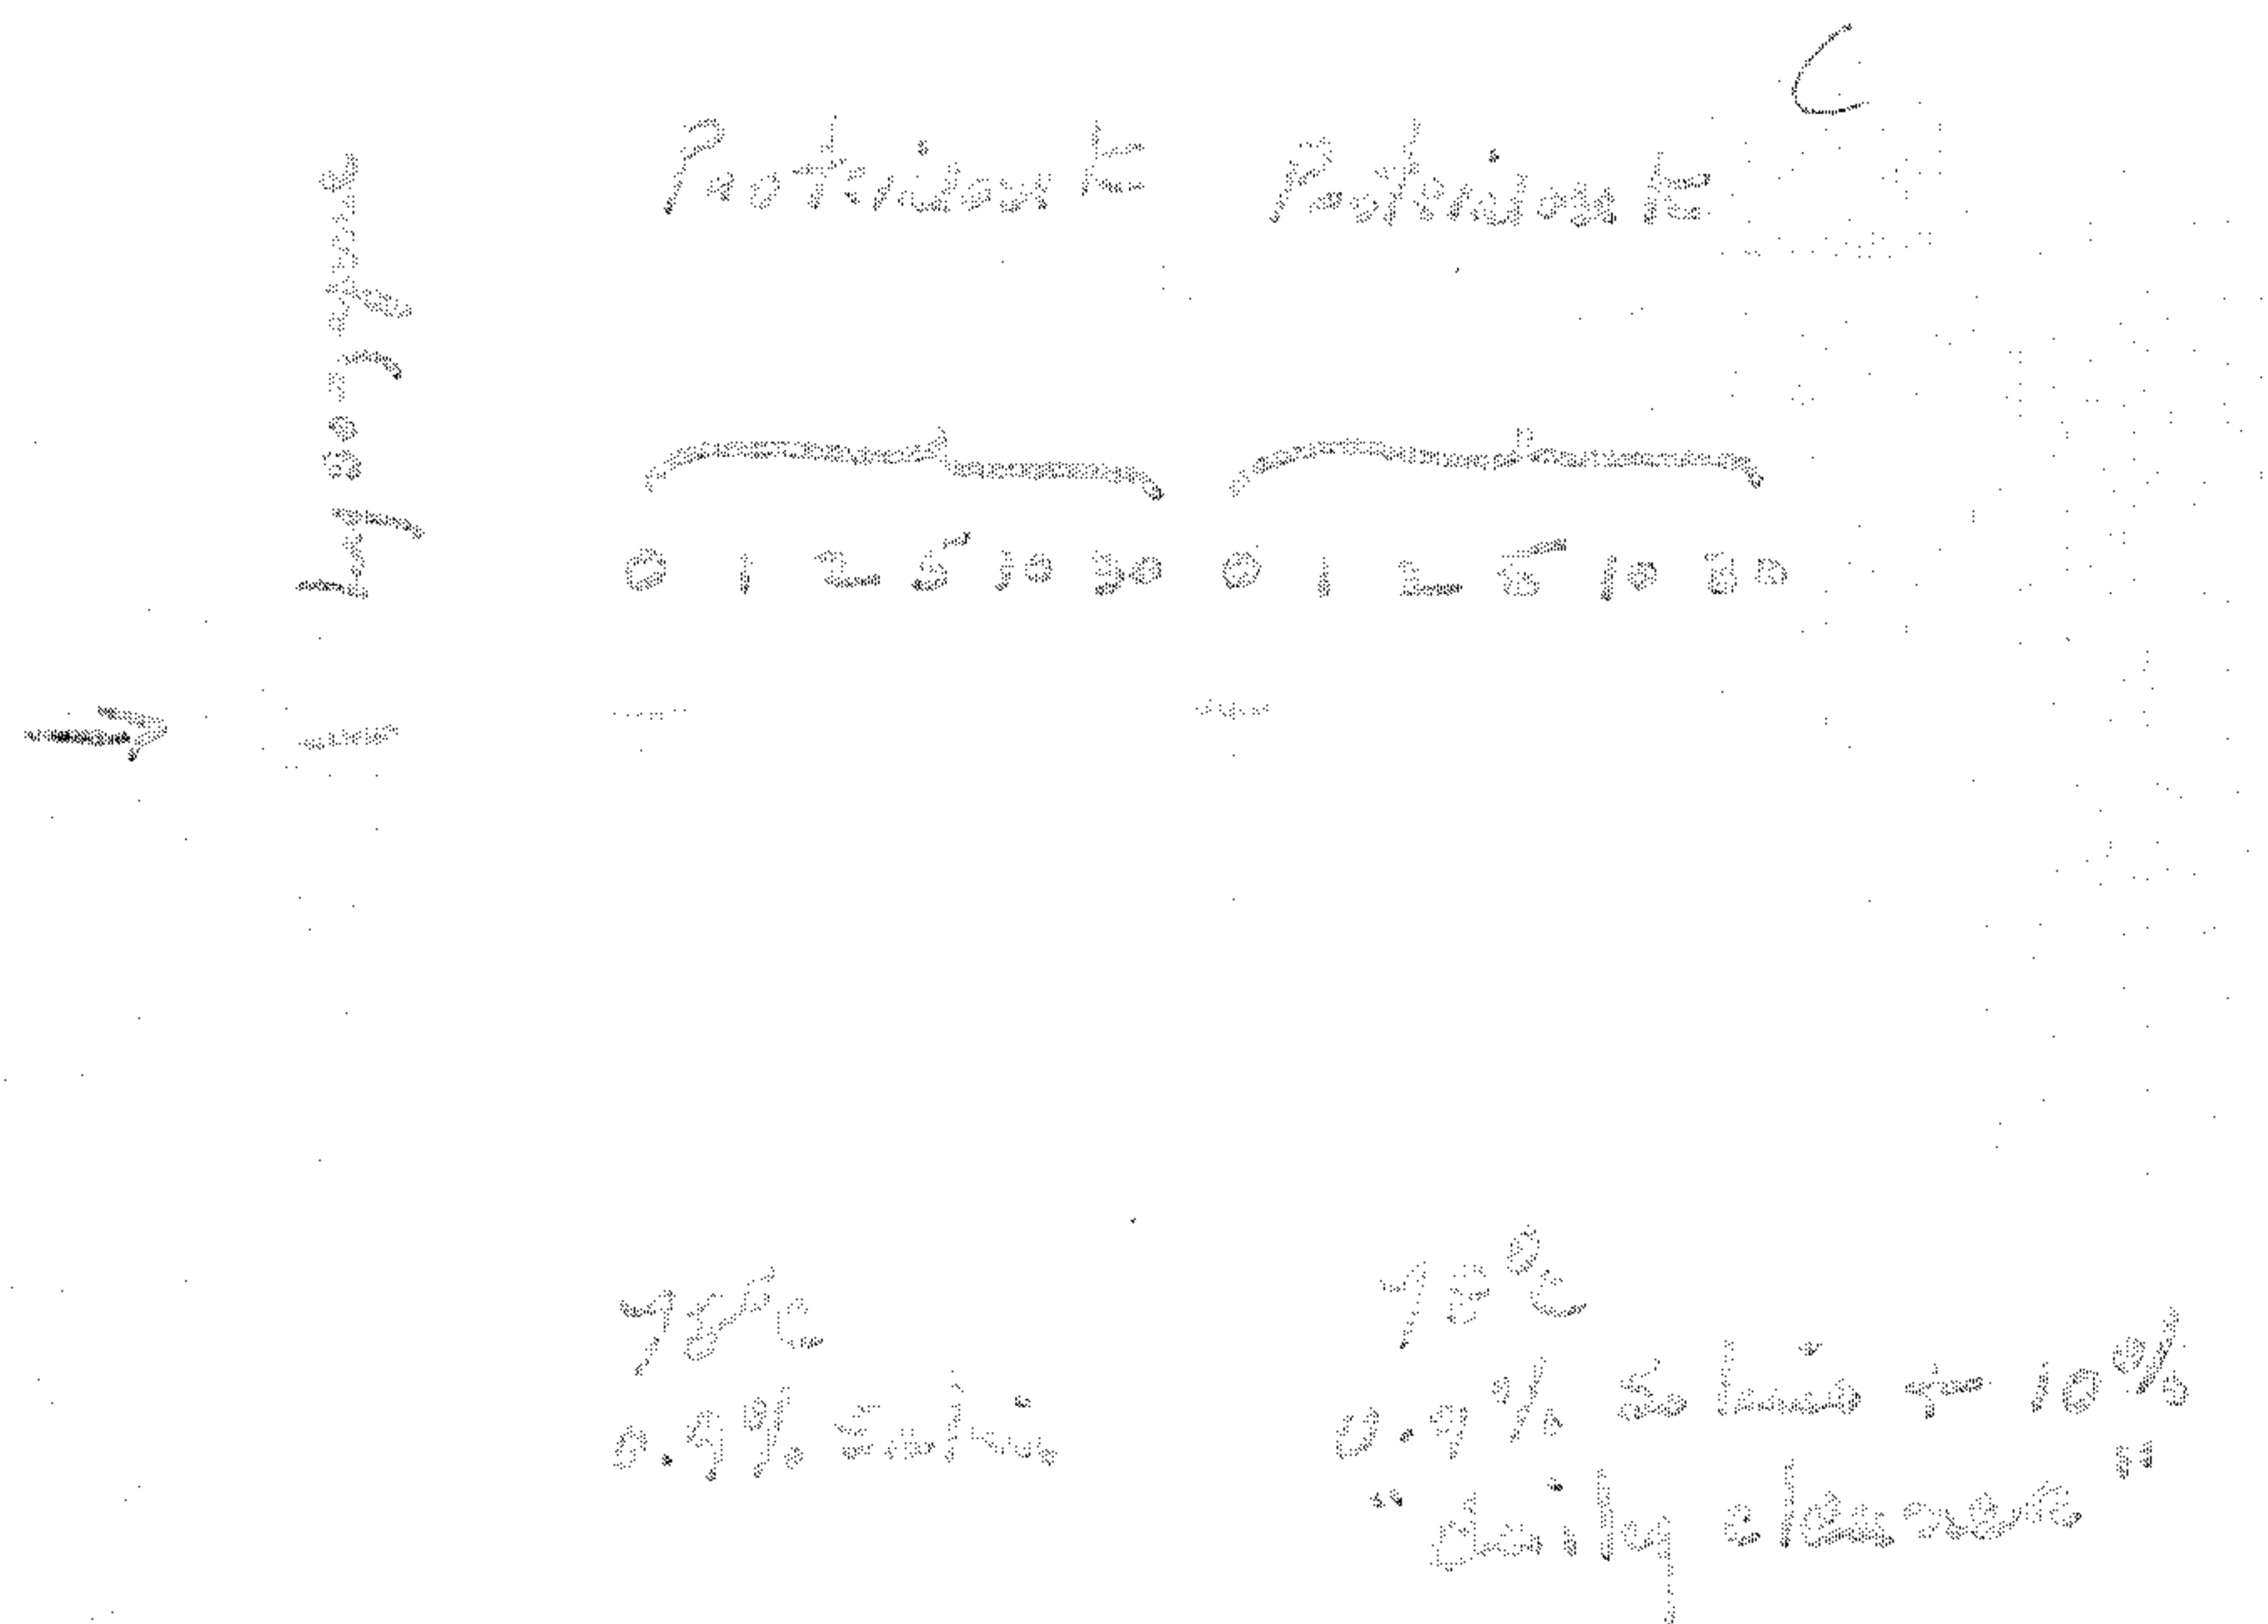 C
Proteinase K Proteinase K
0 1 2 5 10 30 0 1 2 5 10 30
75°C
0.9% Salin
75°C
0.9% Saline + 10%
"daily cleaner"